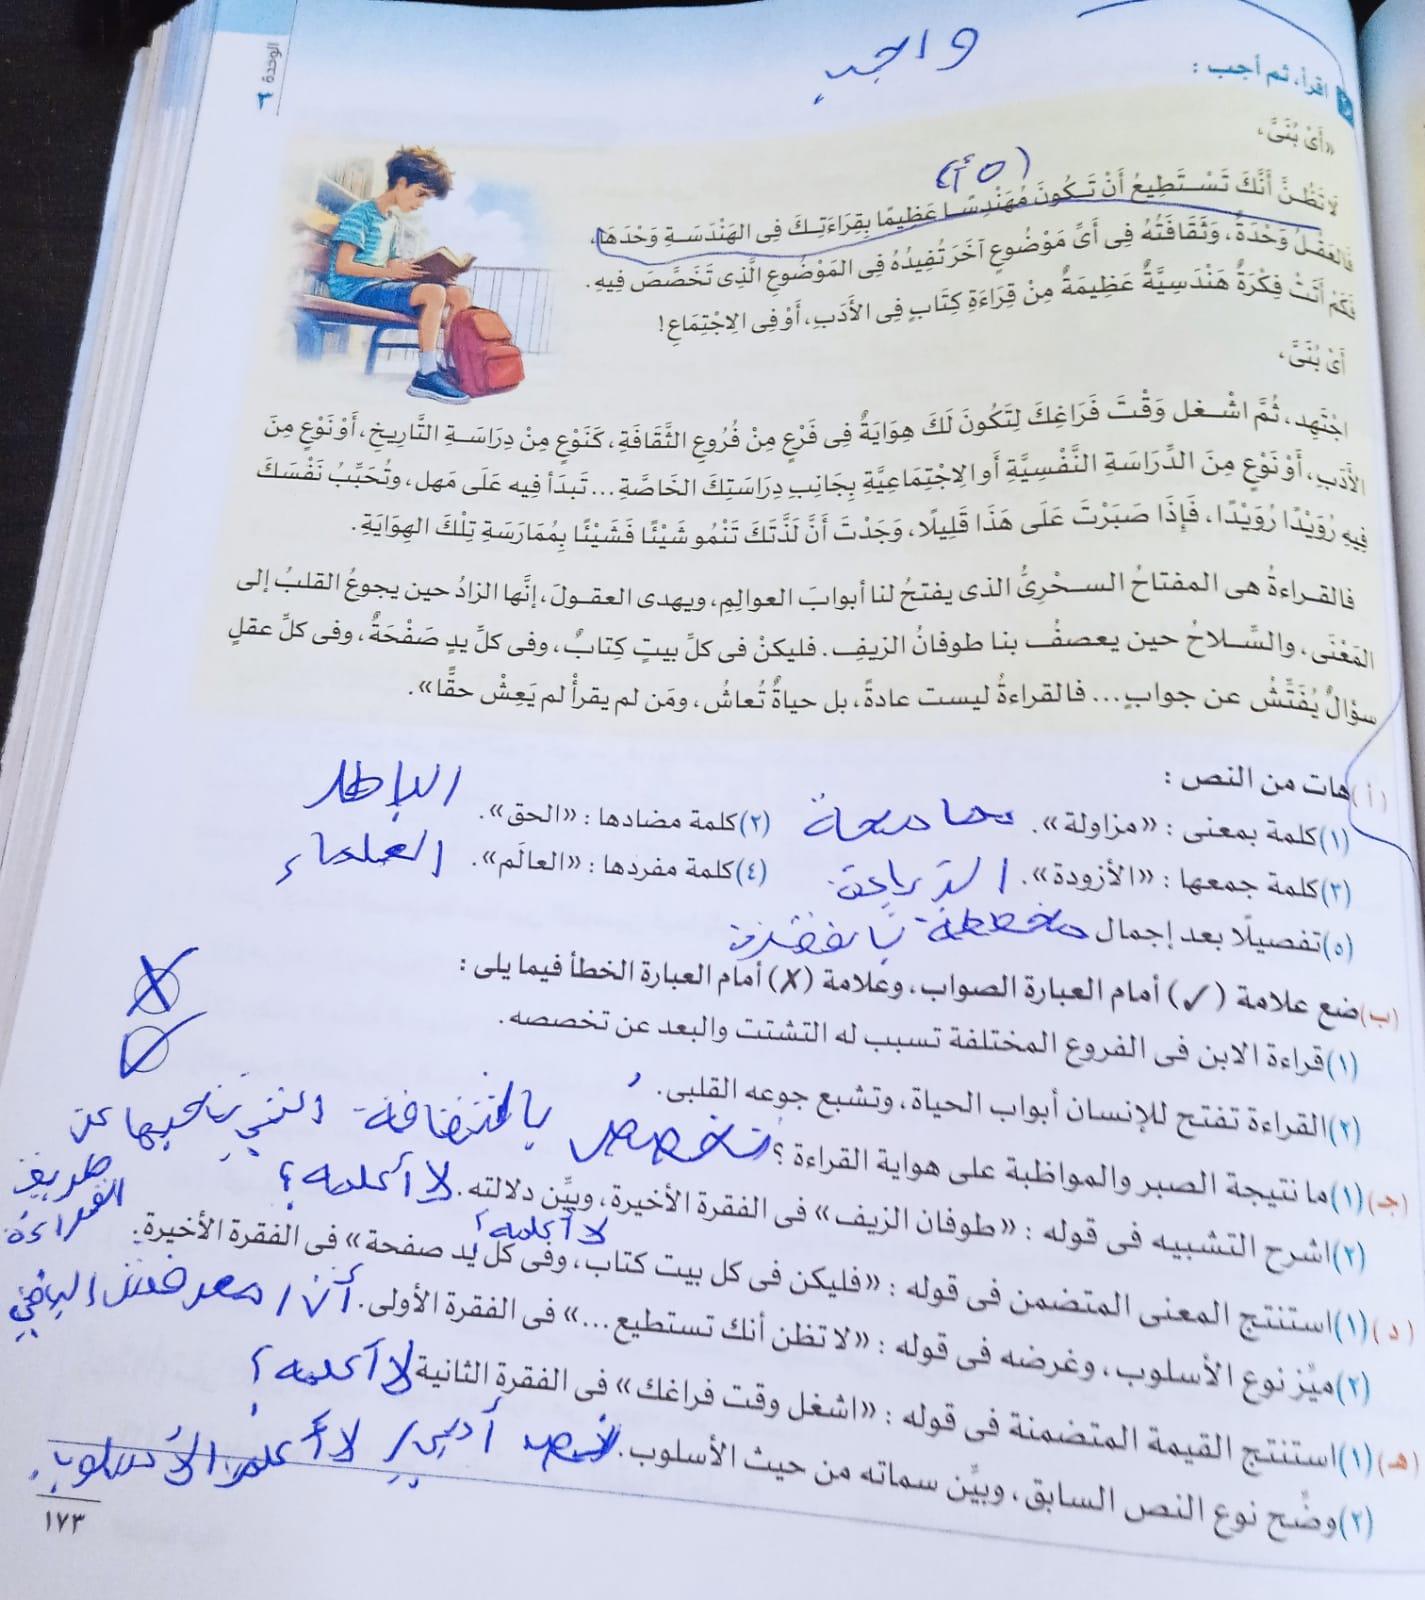 الوحدة ٢
واجب
اقرأ، ثم أجب :
«أَىْ بُنَىَّ،
لَا تَظُنَّ أَنَّكَ تَسْتَطِيعُ أَنْ تَكُونَ مُهَنْدِسًا عَظِيمًا بِقِرَاءَتِكَ فِى الهَنْدَسَةِ وَحْدَهَا،
فَالعَقْلُ وَحْدَةٌ، وَثَقَافَتُهُ فِى أَىِّ مَوْضُوعٍ آخَرَ تُفِيدُهُ فِى المَوْضُوعِ الَّذِى تَخَصَّصَ فِيهِ.
فَكَمْ أَتَتْ فِكْرَةٌ هَنْدَسِيَّةٌ عَظِيمَةٌ مِنْ قِرَاءَةِ كِتَابٍ فِى الأَدَبِ، أَوْ فِى الِاجْتِمَاعِ!
أَىْ بُنَىَّ،
اجْتَهِد، ثُمَّ اشْغل وَقْتَ فَرَاغِكَ لِتَكُونَ لَكَ هِوَايَةٌ فِى فَرْعٍ مِنْ فُرُوعِ الثَّقَافَةِ، كَنَوْعٍ مِنْ دِرَاسَةِ التَّارِيخِ، أَوْ نَوْعٍ مِنَ
الأَدَبِ، أَوْ نَوْعٍ مِنَ الدِّرَاسَةِ النَّفْسِيَّةِ أَوِ الِاجْتِمَاعِيَّةِ بِجَانِبِ دِرَاسَتِكَ الخَاصَّةِ... تَبدَأ فِيه عَلَى مَهل، وتُحَبِّبُ نَفْسَكَ
فِيهِ رُوَيْدًا رُوَيْدًا، فَإِذَا صَبَرْتَ عَلَى هَذَا قَلِيلًا، وَجَدْتَ أَنَّ لَذَّتَكَ تَنْمُو شَيْئًا فَشَيْئًا بِمُمَارَسَةِ تِلْكَ الهِوَايَةِ.
فالقراءةُ هى المفتاحُ السحْرِىُّ الذى يفتحُ لنا أبوابَ العوالِمِ، ويهدى العقولَ، إنَّها الزادُ حين يجوعُ القلبُ إلى
المَعْنَى، والسِّلاحُ حين يعصفُ بنا طوفانُ الزيفِ. فليكنْ فى كلِّ بيتٍ كِتابٌ، وفى كلِّ يدٍ صَفْحَةٌ، وفى كلِّ عقلٍ
سؤالٌ يُفَتِّشُ عن جوابٍ... فالقراءةُ ليست عادةً، بل حياةٌ تُعاشُ، ومَن لم يقرأْ لم يَعِشْ حقًّا».
(أ) هات من النص :
(١) كلمة بمعنى : «مزاولة».
(٢) كلمة مضادها : «الحق». الباطل
(٣) كلمة جمعها : «الأزودة».
(٤) كلمة مفردها : «العالَم». العلماء
(٥) تفصيلًا بعد إجمال
(ب) ضع علامة (✓) أمام العبارة الصواب، وعلامة (✗) أمام العبارة الخطأ فيما يلى :
(١) قراءة الابن فى الفروع المختلفة تسبب له التشتت والبعد عن تخصصه. ✗
(٢) القراءة تفتح للإنسان أبواب الحياة، وتشبع جوعه القلبى. ✓
(جـ) (١) ما نتيجة الصبر والمواظبة على هواية القراءة ؟ تخصص بالثقافة عن طريق القراءة
(٢) اشرح التشبيه فى قوله : «طوفان الزيف» فى الفقرة الأخيرة، وبيِّن دلالته. لا أعلمه؟
(د) (١) استنتج المعنى المتضمن فى قوله : «فليكن فى كل بيت كتاب، وفى كل يد صفحة» فى الفقرة الأخيرة. لا أعلمه؟
(٢) ميِّز نوع الأسلوب، وغرضه فى قوله : «لا تظن أنك تستطيع...» فى الفقرة الأولى.
(هـ) (١) استنتج القيمة المتضمنة فى قوله : «اشغل وقت فراغك» فى الفقرة الثانية لا أعلمه؟
(٢) وضِّح نوع النص السابق، وبيِّن سماته من حيث الأسلوب. نص أدبي / لا أعلم الأسلوب.
١٧٣